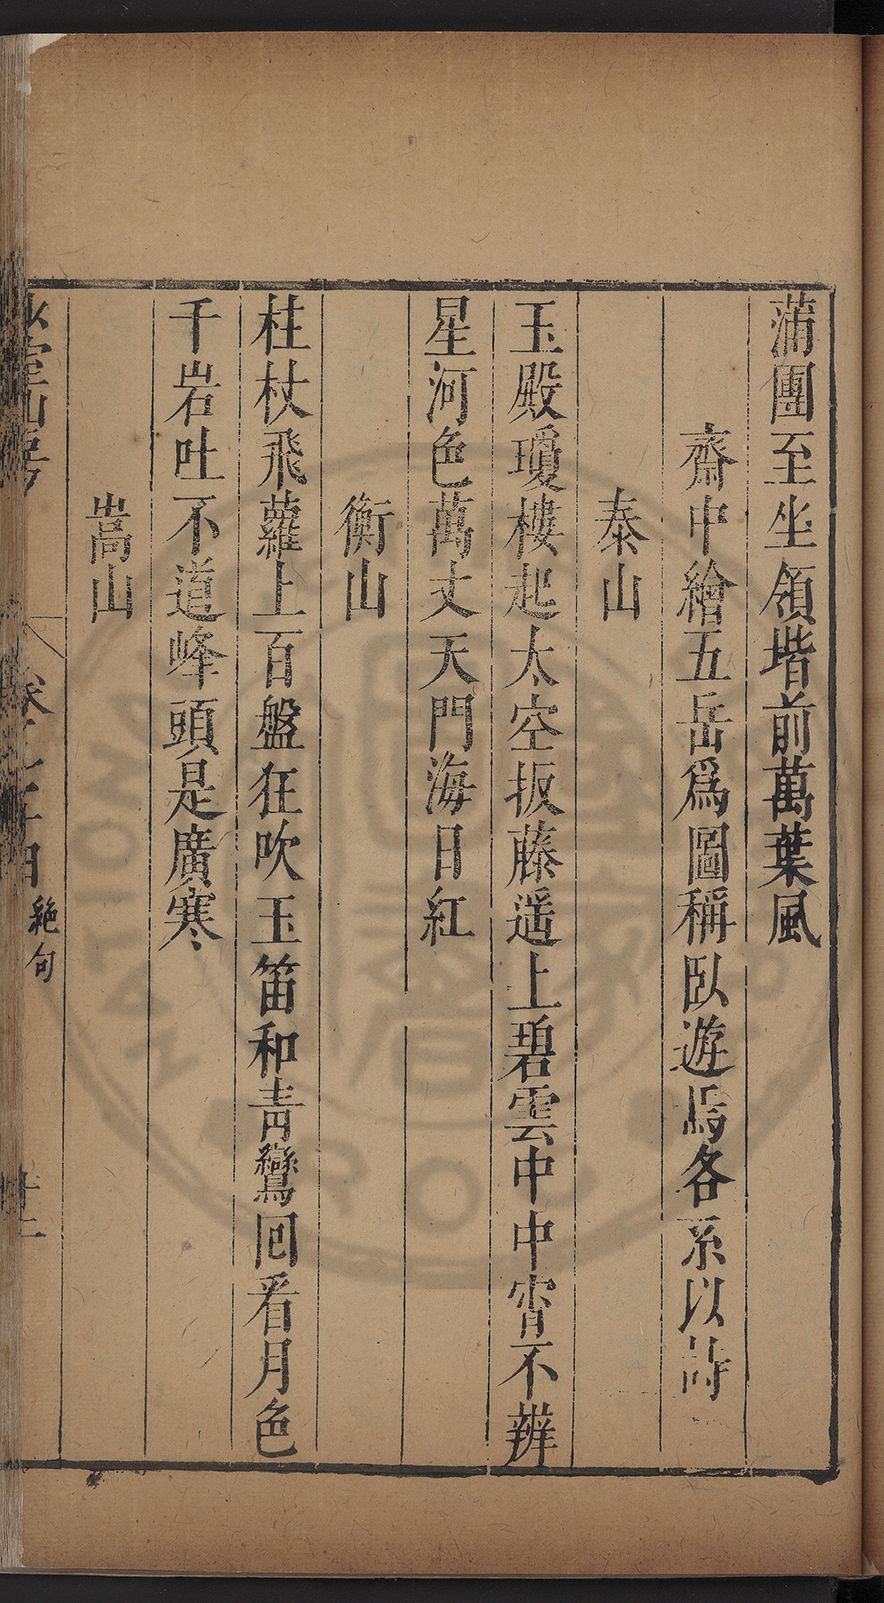 蒲團至坐領堦前萬葉風
齋中繪五岳爲圖稱臥遊焉各系以詩
泰山
玉殿瓊樓起太空扳藤遥上碧雲中中宵不辨
星河色萬丈天門海日紅
衡山
桂杖飛蘿上百盤狂吹玉笛和青鸞囘看月色
千岩吐不道峰頭是廣寒
嵩山
絶句